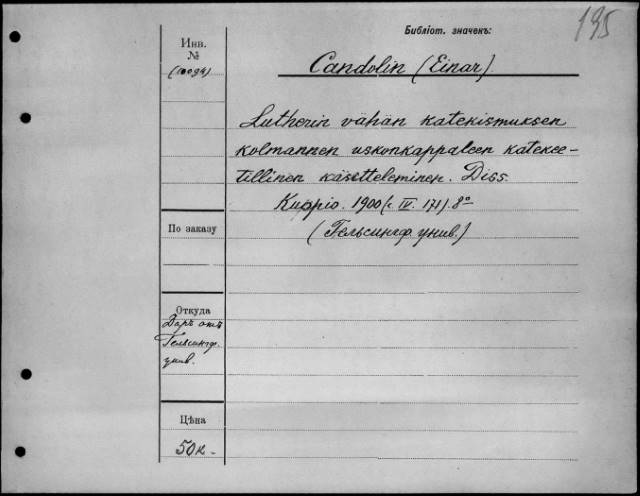 195
Библіот. значекъ:
Инв.
№
(10094)
Candolin (Einar).
Lutherin vähän katekismuksen
kolmannen uskonkappaleen katekee-
tillinen käsitteleminen. Diss.
Kuopio. 1900 (c. IV. 171). 8°
(Гельсингф. унив.)
По заказу
Откуда
Даръ отъ
Гельсингф.
унив.
Цѣна
50 к.